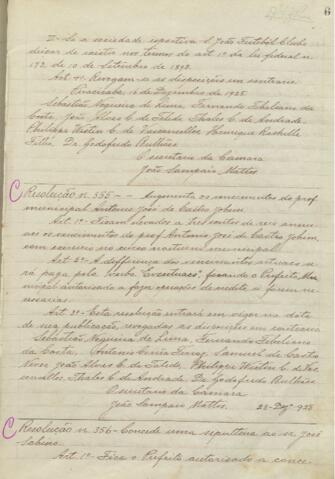 6
II - Se a sociedade esportiva S. João Futebol Clube
deixar de existir nos termos do art. 1º da lei federal n.
173, de 10 de Setembro de 1893.
Art. 4º Revogam-se as disposições em contrario
Piracicaba, 16 de Dezembro de 1925
Sebastião Nogueira de Lima, Fernando Febeliano da
Costa, João Alves C. de Toledo, Thales C. de Andrade,
Philippe Westin C. de Vasconcellos, Henrique Rochelle
Filho, Dr. Godofredo Bulhões
O secretario da Camara
João Sampaio Mattos
Resolução n. 355 - - Augmenta os vencimentos do prof.
municipal Antonio José de Castro Jobim.
Art. 1º - Ficam elevados a Trezentos de reis annu-
aes os vencimentos do prof. Antonio José de Castro Jobim,
com exercicio no curso nocturno municipal.
Art. 2º - A differença dos vencimentos actuaes se-
rá paga pela verba "Eventuaes", ficando o Prefeito Mu-
nicipal autorizado a fazer operações de credito si forem ne-
cessarias.
Art. 3º - Esta resolução entrará em vigor na data
de sua publicação, revogadas as disposições em contrario
Sebastião Nogueira de Lima, Fernando Febeliano
da Costa, Antonio Ferraz, Samuel de Castro
Neves, João Alves C. de Toledo, Philippe Westin C. de Vas-
concellos, Thales C. de Andrade, Dr. Godofredo Bulhões
O secretario da Camara
João Sampaio Mattos. 28-Dez-925
Resolução n. 356 - Concede uma sepultura ao sr. José
Sabino.
Art. 1º - Fica o Prefeito autorizado a conce-